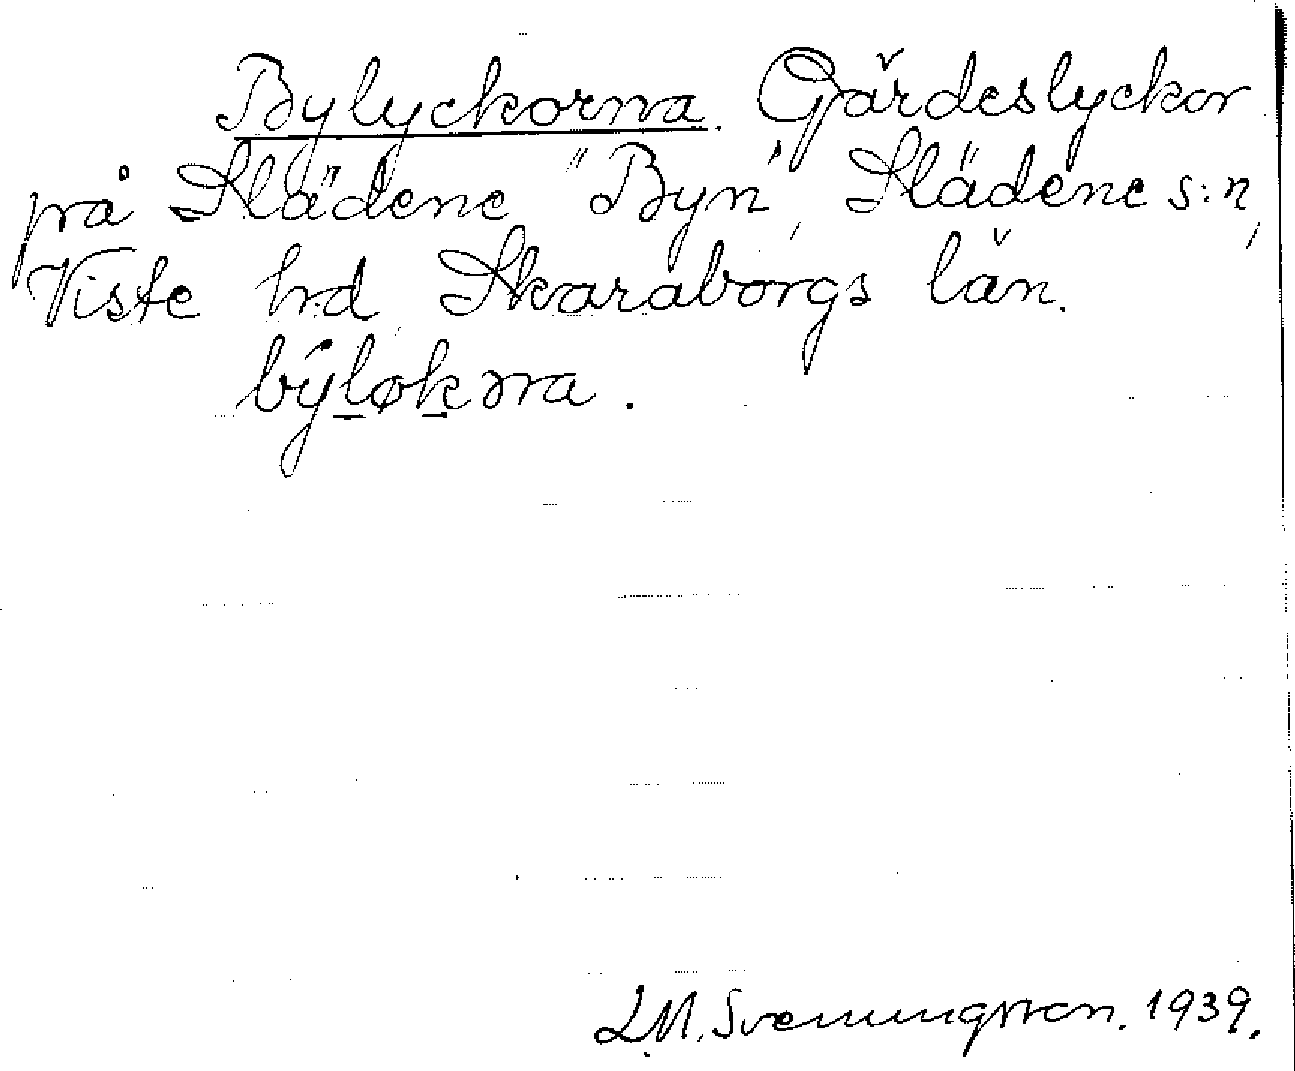 Bylyckorna. Gärdeslyckor
på Slädene "Byn", Slädene s:n,
Viste hd, Skaraborgs län.
býløkəna.
L.M. Svenungsson. 1939.